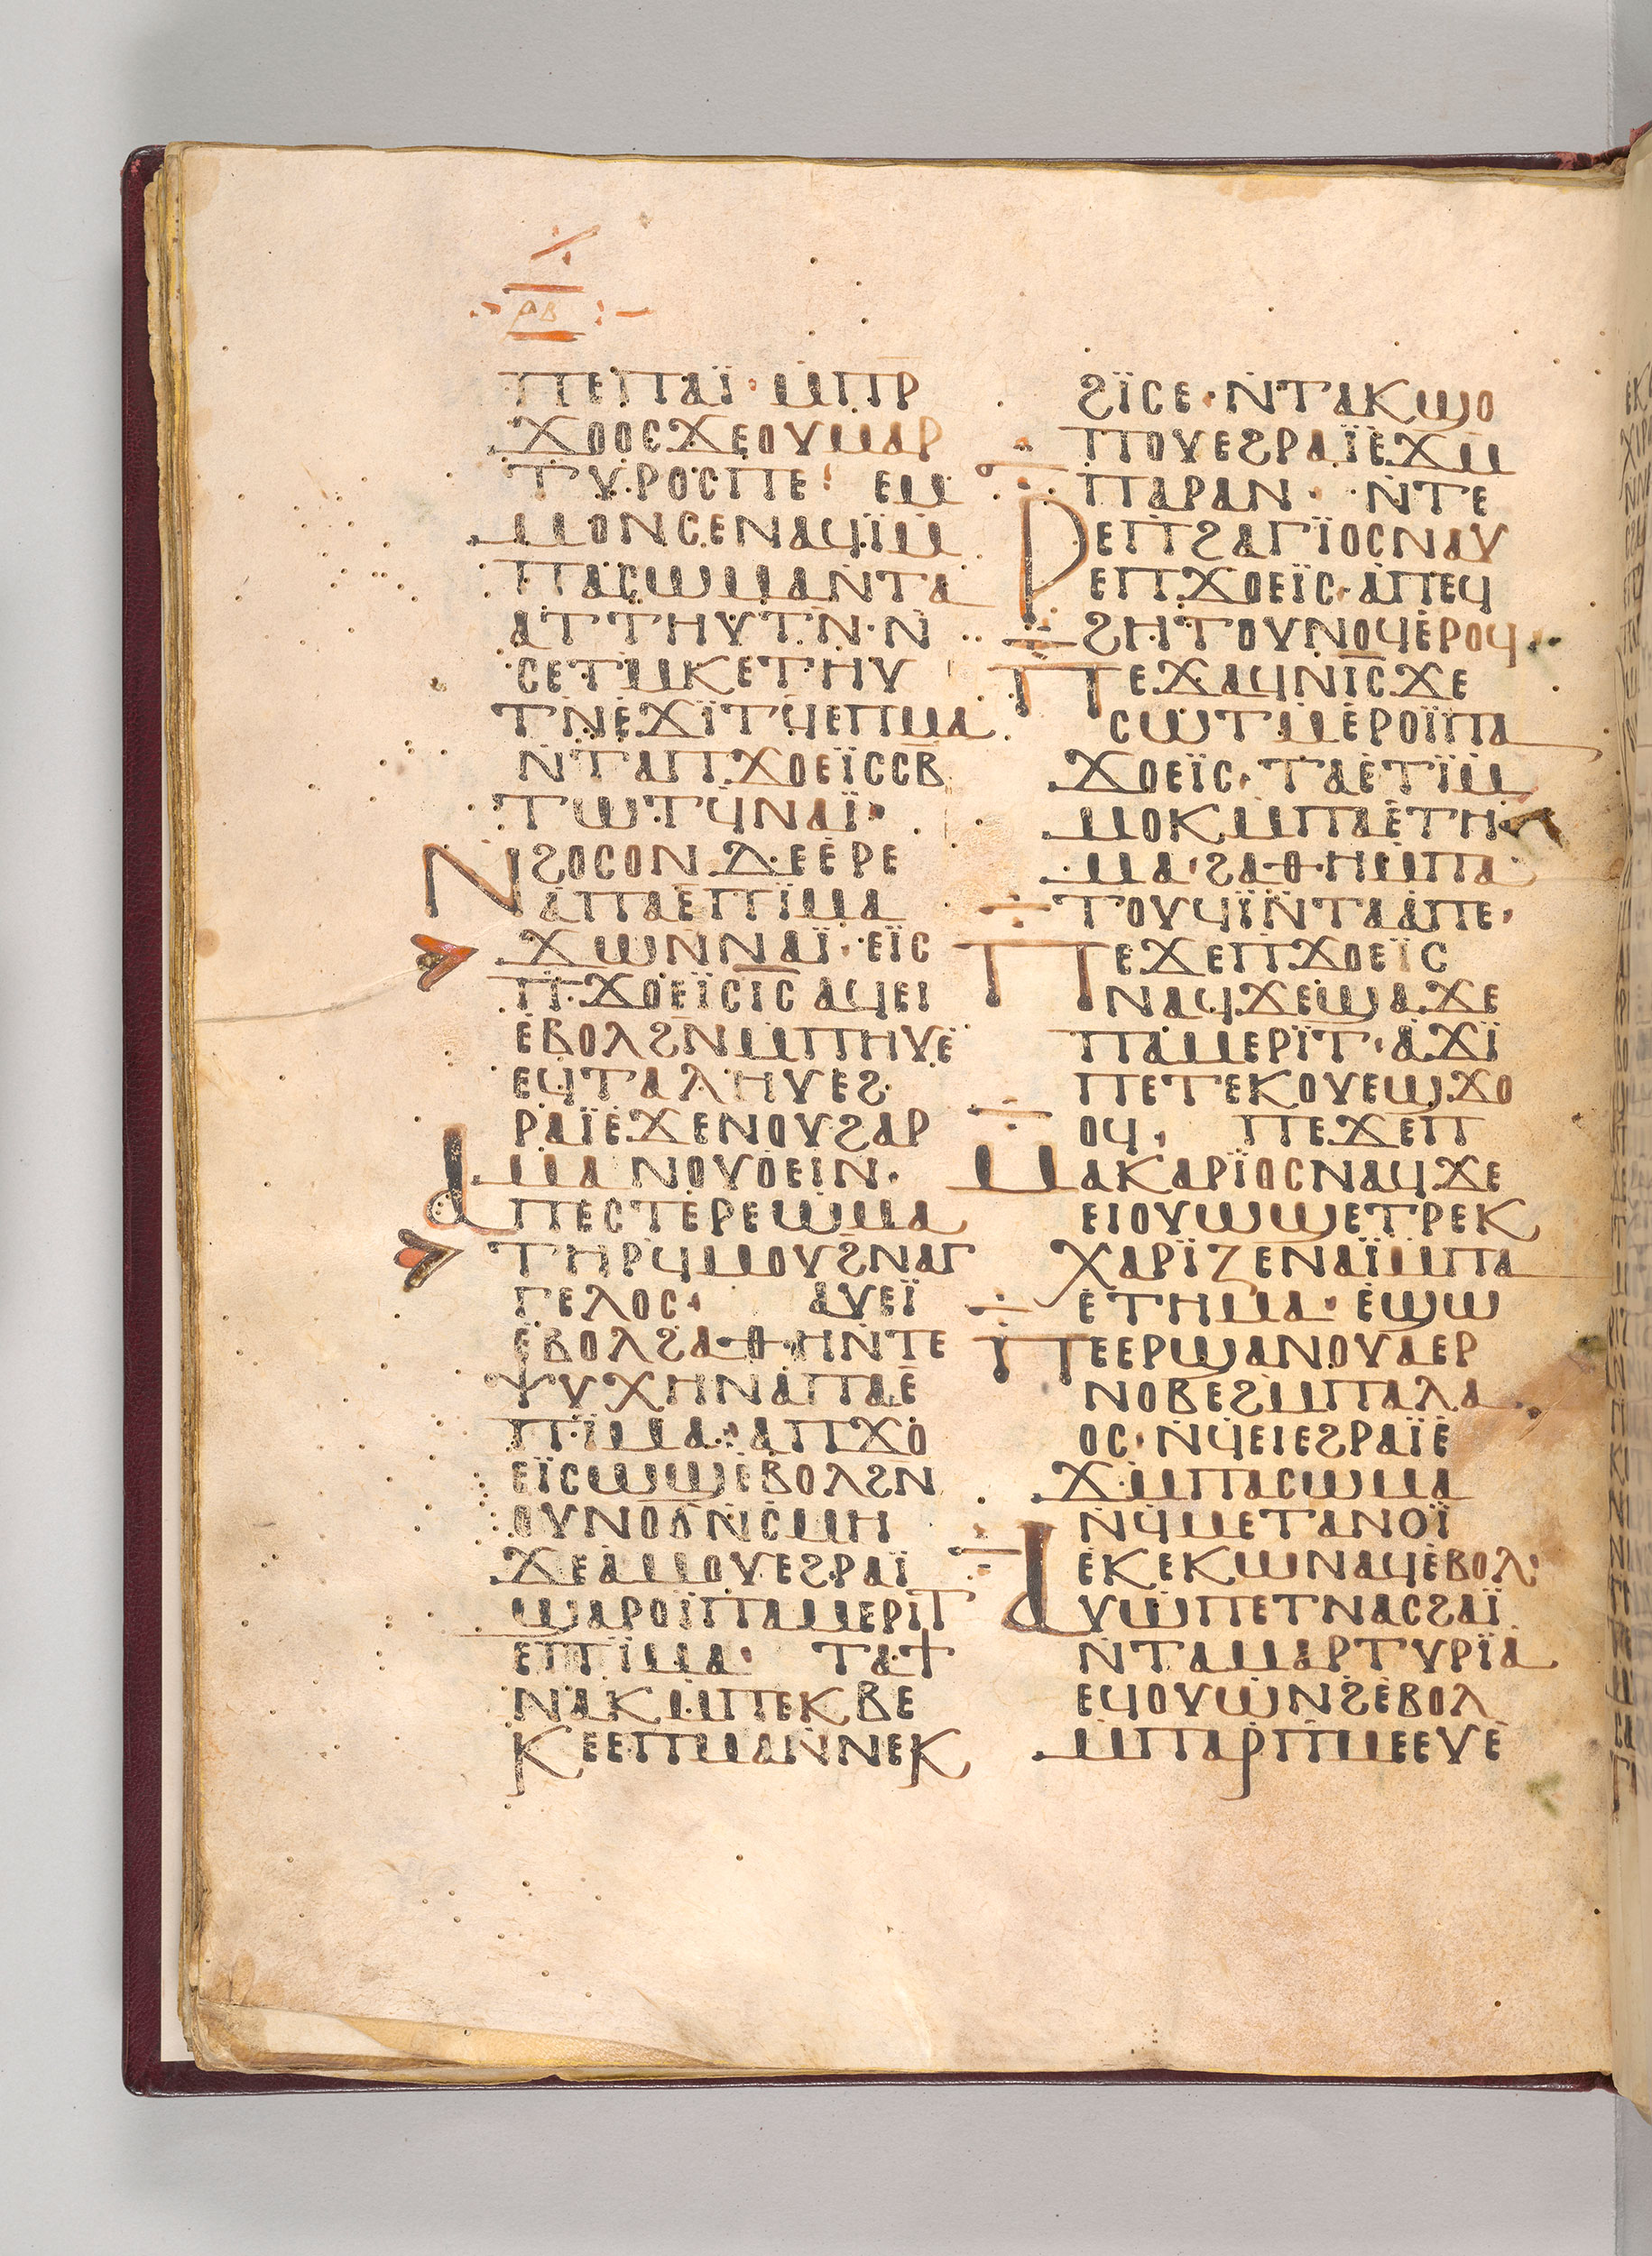 ⲣⲃ
ⲡⲉⲡⲁⲓ̈· ⲙⲡⲣ
ϫⲟⲟⲥϫⲉⲟⲩⲙⲁⲣ
ⲧⲩⲣⲟⲥⲡⲉ· ⲉⲙ
ⲙⲟⲛⲥⲉⲛⲁϥⲓ̈ⲙ
ⲡⲁⲥⲱⲙⲁⲛⲧⲁ
ⲁⲧⲧⲏⲩⲧⲛ·ⲛ
ⲥⲉⲧⲙⲕⲉⲧⲏⲩ
ⲧⲛⲉϫⲓ̈ⲧϥⲉⲡⲙⲁ
ⲛⲧⲁⲡϫⲟⲉⲓ̈ⲥⲥⲃ
ⲧⲱⲧϥⲛⲁⲓ̈·
ⲛϩⲟⲥⲟⲛⲇⲉⲉⲣⲉ
ⲁⲡⲁⲉⲡⲓ̈ⲙⲁ
ϫⲱⲛⲛⲁⲓ̈·ⲉⲓ̈ⲥ
ⲡϫⲟⲉⲓ̈ⲥⲓ̅ⲥ̅ ⲁϥⲉⲓ
ⲉⲃⲟⲗϩⲛⲙⲡⲏⲩⲉ
ⲉϥⲧⲁⲗⲏⲩⲉϩ
ⲣⲁⲓ̈ⲉϫⲉⲛⲟⲩϩⲁⲣ
ⲙⲁ ⲛⲟⲩⲟⲉⲓⲛ·
ⲁⲡⲉⲥⲧⲉⲣⲉⲱⲙⲁ
ⲧⲏⲣϥⲙⲟⲩϩⲛⲁⲅ
ⲅⲉⲗⲟⲥ· ⲁⲩⲉⲓ̈
ⲉⲃⲟⲗϩⲁⲑⲏⲛⲧⲉ
ⲯⲩⲭⲏⲛⲁⲡⲁⲉ
ⲡⲓ̈ⲙⲁ· ⲁⲡϫⲟ
ⲉⲓ̈ⲥⲱϣⲉⲃⲟⲗϩⲛ
ⲟⲩⲛⲟϭⲛⲥⲙⲏ
ϫⲉⲁⲙⲟⲩⲉϩⲣⲁⲓ̈
ϣⲁⲣⲟⲓ̈ⲡⲁⲙⲉⲣⲓⲧ
ⲉⲡⲓ̈ⲙⲁ· ⲧⲁϯ
ⲛⲁⲕⲙⲡⲉⲕⲃⲉ
ⲕⲉⲉⲡⲙⲁⲛⲛⲉⲕ
ϩⲓ̈ⲥⲉ·ⲛⲧⲁⲕϣⲟ
ⲡⲟⲩⲉϩⲣⲁⲓ̈ⲉϫⲙ
ⲡⲁⲣⲁⲛ· ⲛⲧⲉ
ⲣⲉⲡϩⲁⲅⲓ̈ⲟⲥⲛⲁⲩ
ⲉⲡϫⲟⲉⲓ̈ⲥ·ⲁⲡⲉϥ
ϩⲏⲧⲟⲩⲛⲟϥⲉⲣⲟϥ·
ⲡⲉϫⲁϥⲛⲓ̅ⲥ̅ϫⲉ
ⲥⲱⲧⲙⲉⲣⲟⲓ̈ⲡⲁ
ϫⲟⲉⲓ̈ⲥ·ⲧⲁⲉⲧⲓ̈ⲙ
ⲙⲟⲕⲙⲡⲁⲉⲧⲏ
ⲙⲁ·ϩⲁⲑⲏⲙⲡⲁ
ⲧⲟⲩϥⲓ̈ⲛⲧⲁⲁⲡⲉ·
ⲡⲉϫⲉⲡϫⲟⲉⲓ̈ⲥ
ⲛⲁϥϫⲉϣⲁϫⲉ
ⲡⲁⲙⲉⲣⲓ̈ⲧ·ⲁϫⲓ̈
ⲡⲉⲧⲉⲕⲟⲩⲉϣϫⲟ
ⲟϥ· ⲡⲉϫⲉⲡ
ⲙⲁⲕⲁⲣⲓ̈ⲟⲥⲛⲁϥϫⲉ
ⲉⲓⲟⲩⲱϣⲉⲧⲣⲉⲕ
ⲭⲁⲣⲓ̈ⲍⲉⲛⲁⲓ̈ⲙⲡⲁ
ⲉⲧⲏⲙⲁ·ⲉϣⲱ
ⲡⲉⲉⲣϣⲁⲛⲟⲩⲁⲉⲣ
ⲛⲟⲃⲉϩⲙⲡⲁⲗⲁ
ⲟⲥ·ⲛϥⲉⲓⲉϩⲣⲁⲓ̈ⲉ
ϫⲙⲡⲁⲥⲱⲙⲁ
ⲛϥⲙⲉⲧⲁⲛⲟⲓ̈
ⲉⲕⲉⲕⲱⲛⲁϥⲉⲃⲟⲗ·
ⲁⲩⲱⲡⲉⲧⲛⲁⲥϩⲁⲓ̈
ⲛⲧⲁⲙⲁⲣⲧⲩⲣⲓ̈ⲁ
ⲉϥⲟⲩⲱⲛϩⲉⲃⲟⲗ
ⲙⲡⲁⲣⲡⲙⲉⲉⲩⲉ